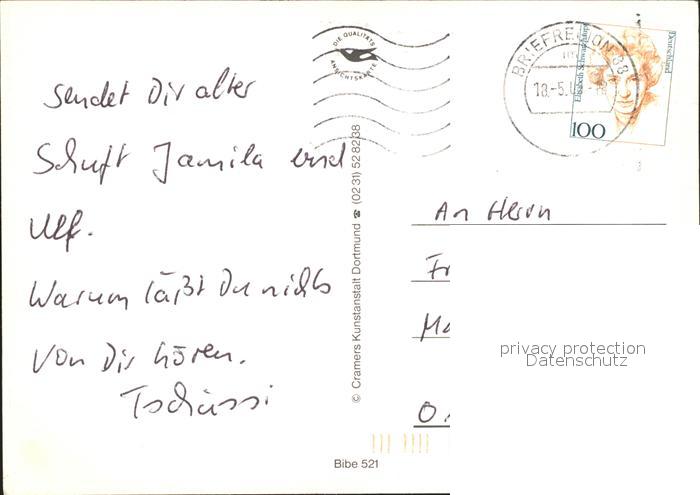 sendet Dir alter
Schuft Jamila und
Ulf.
Warum läßt Du nichts
von Dir hören.
Tschüssi
DIE QUALITÄTS
ANSICHTSKARTE
© Cramers Kunstanstalt Dortmund ☎ (02 31) 52 82 38
Bibe 521
BRIEFREGION 88
18.-5.
Deutschland
Elisabeth Schwarzhaupt
100
An Herrn
Fr
Ma
O
privacy protection
Datenschutz